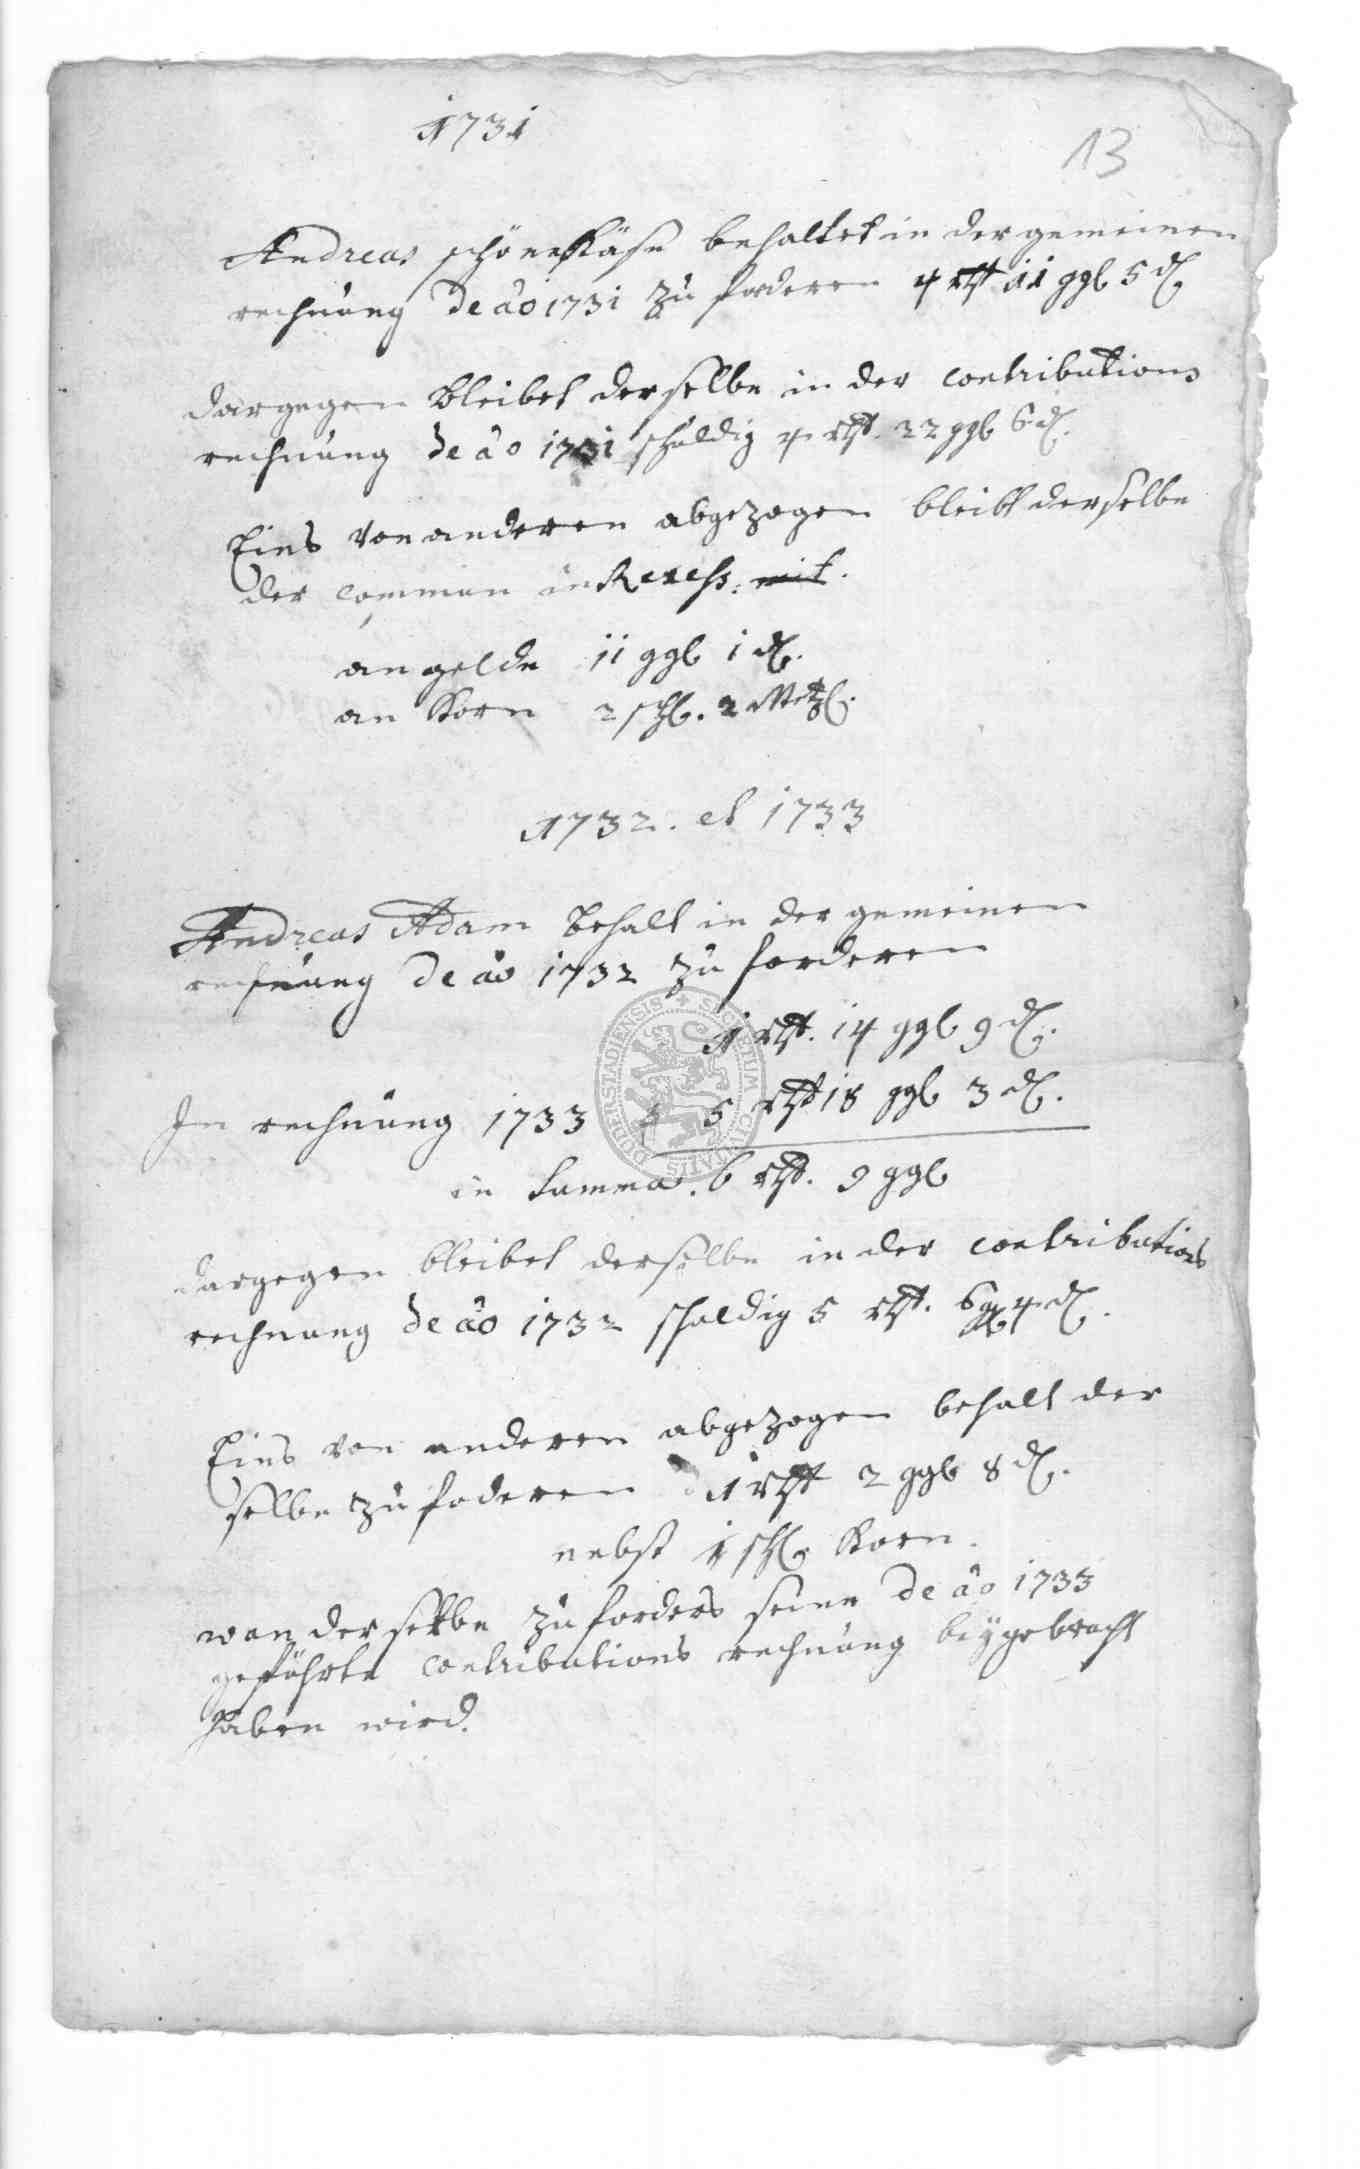 1731
13
Andreas schönekäse behaltet in der gemeinen
rechnung de ao 1731 zu forderen 4 rthl 11 ggl 5 d.
dargegen bleibet derselbe in der contributions
rechnung de ao 1731 schuldig 4 rthl. 22 ggl 6 d.
Eins von anderen abgezogen bleibt derselbe
der commun in Recess. mit.
an gelde 11 ggl 1 d.
an Korn 2 schl. 2 Metzl.
1732. et 1733
Andreas Adam behalt in der gemeinen
rechnung de ao 1732 zu forderen
1 rthl. 14 ggl 9 d.
In rechnung 1733 5 rthl 18 ggl 3 d.
in Summa. 6 rthl. 9 ggl
dargegen bleibet derselbe in der contributions
rechnung de ao 1732 schuldig 5 rthl. 6 ggl 4 d.
Eins von anderen abgezogen behalt der
selbe zu foderen 1 rthl 2 ggl 8 d.
nebst 1 schl. Korn.
wan derselbe zuforders seine de ao 1733
geführte contributions rechnung beygebracht
haben wird.
SIGILLUM CIVITATIS DUDERSTADIENSIS